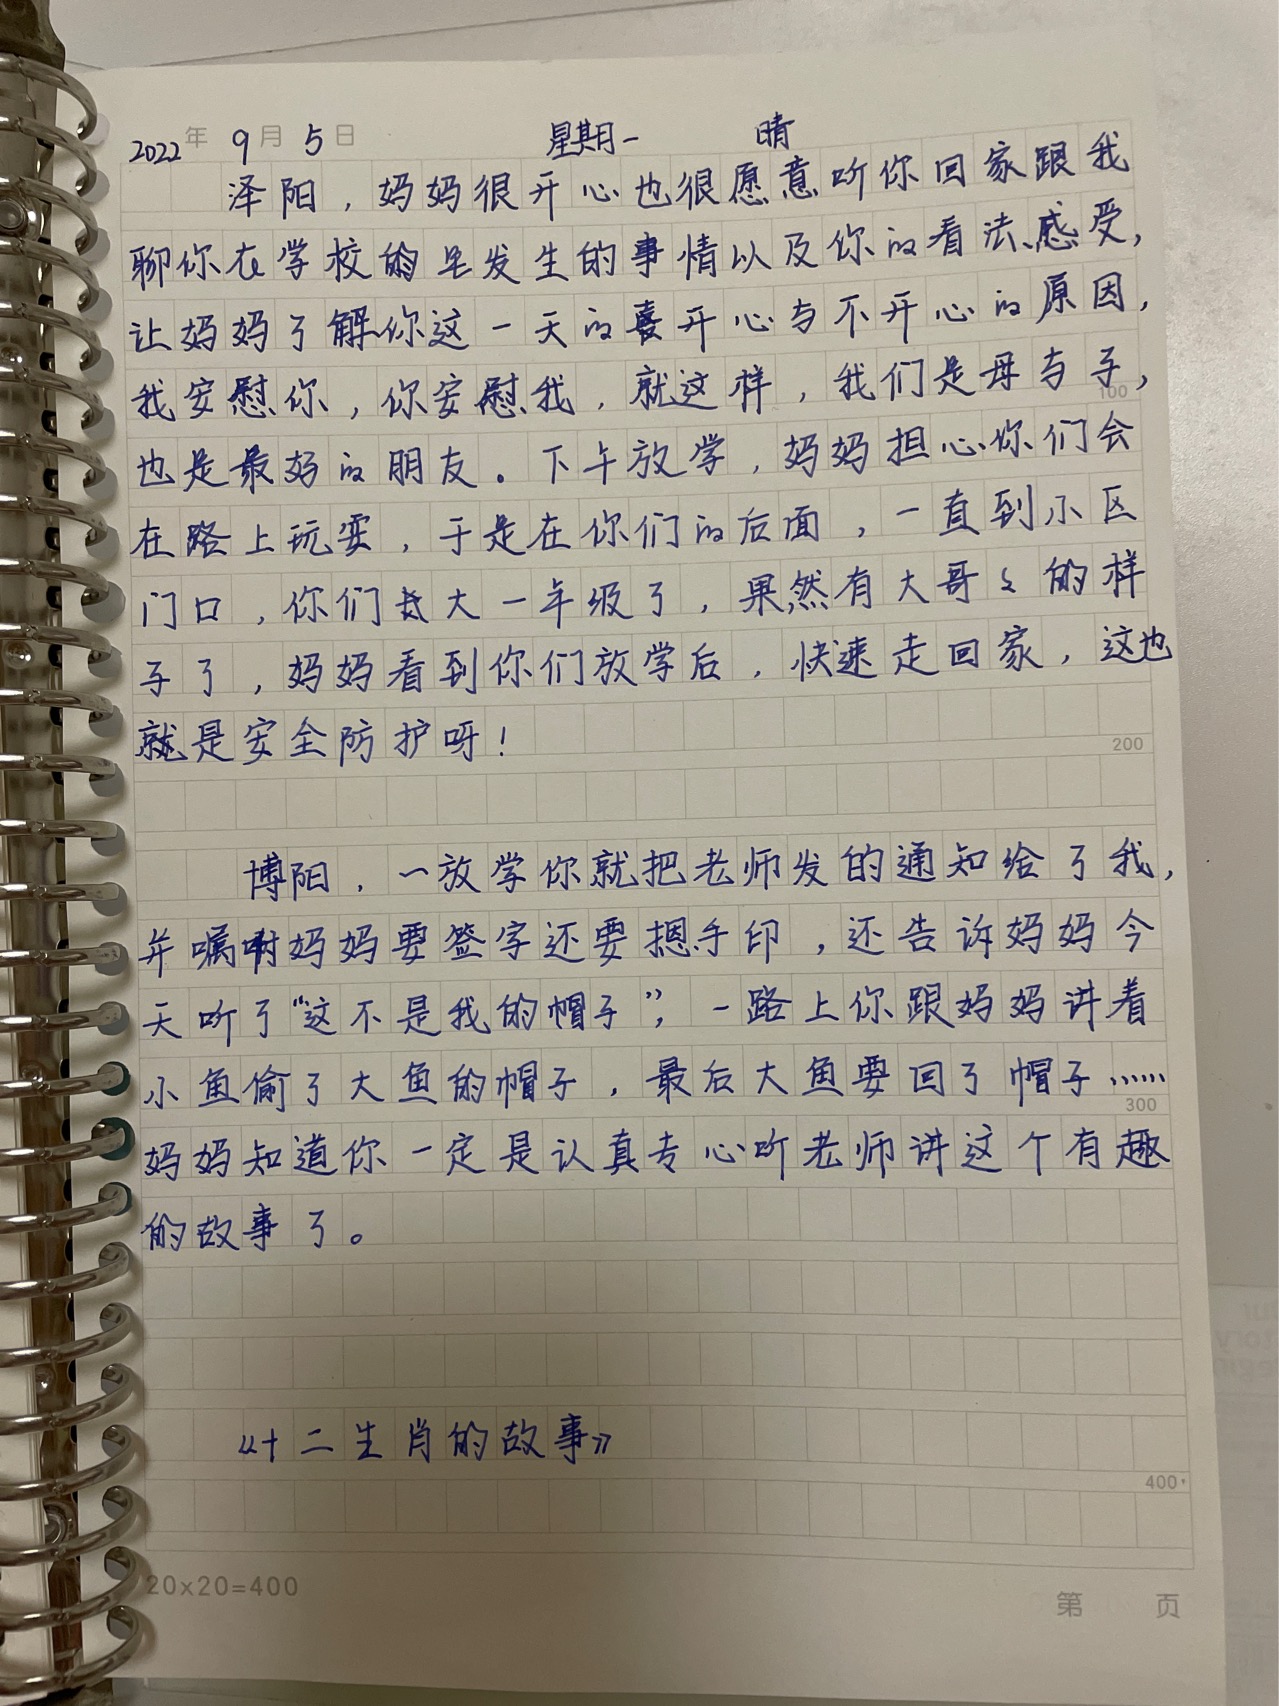 2022年 9月 5日 星期一 晴
泽阳，妈妈很开心也很愿意听你回家跟我
聊你在学校的发生的事情以及你的看法感受，
让妈妈了解你这一天的开心与不开心的原因，
我安慰你，你安慰我，就这样，我们是母与子，
100
也是最好的朋友。下午放学，妈妈担心你们会
在路上玩耍，于是在你们的后面，一直到小区
门口，你们大一年级了，果然有大哥々的样
子了，妈妈看到你们放学后，快速走回家，这也
就是安全防护呀！
200
博阳，一放学你就把老师发的通知给了我，
并嘱咐妈妈要签字还要摁手印，还告诉妈妈今
天听了“这不是我的帽子”，一路上你跟妈妈讲着
小鱼偷了大鱼的帽子，最后大鱼要回了帽子……
300
妈妈知道你一定是认真专心听老师讲这个有趣
的故事了。
《十二生肖的故事》
400
20×20=400
第 页